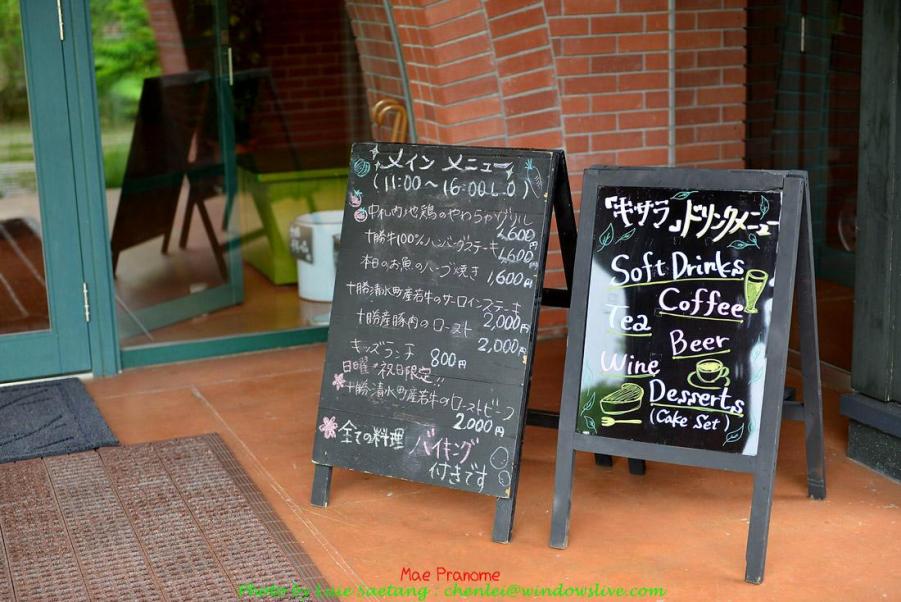 メイン メニュー
(11:00～16:00 L.O)
中札内地鶏のやわらかグリル
1,600円
十勝牛100%ハンバーグステーキ
1,600円
本日のお魚のハーブ焼き 1,600円
十勝清水町産若牛のサーロインステーキ
2,000円
十勝産豚肉のロースト
2,000円
キッズランチ 800円
日曜・祝日限定!!
十勝清水町産若牛のローストビーフ
2,000円
全ての料理 バイキング
付きです
「キサラ」ドリンクメニュー
Soft Drinks
Coffee
Tea
Beer
Wine
Desserts
(Cake Set)
Mae Pranome
Photo by Luie Saetang : chenlei@windowslive.com